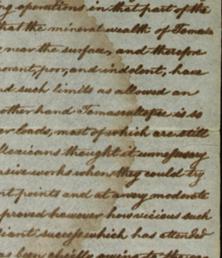 ng operations in that part of the
that the mineral wealth of Temas
near the surface, and therefore
norant, poor, and indolent, have
d such limits as allowed an
other hand Temascaltepec is so
er loads, most of which are still
Mexicans thought it unnecessary
nsive works when they could try
nt points and at a very moderate
proved however how vicious such
liant success which has attended
been chiefly owing to the